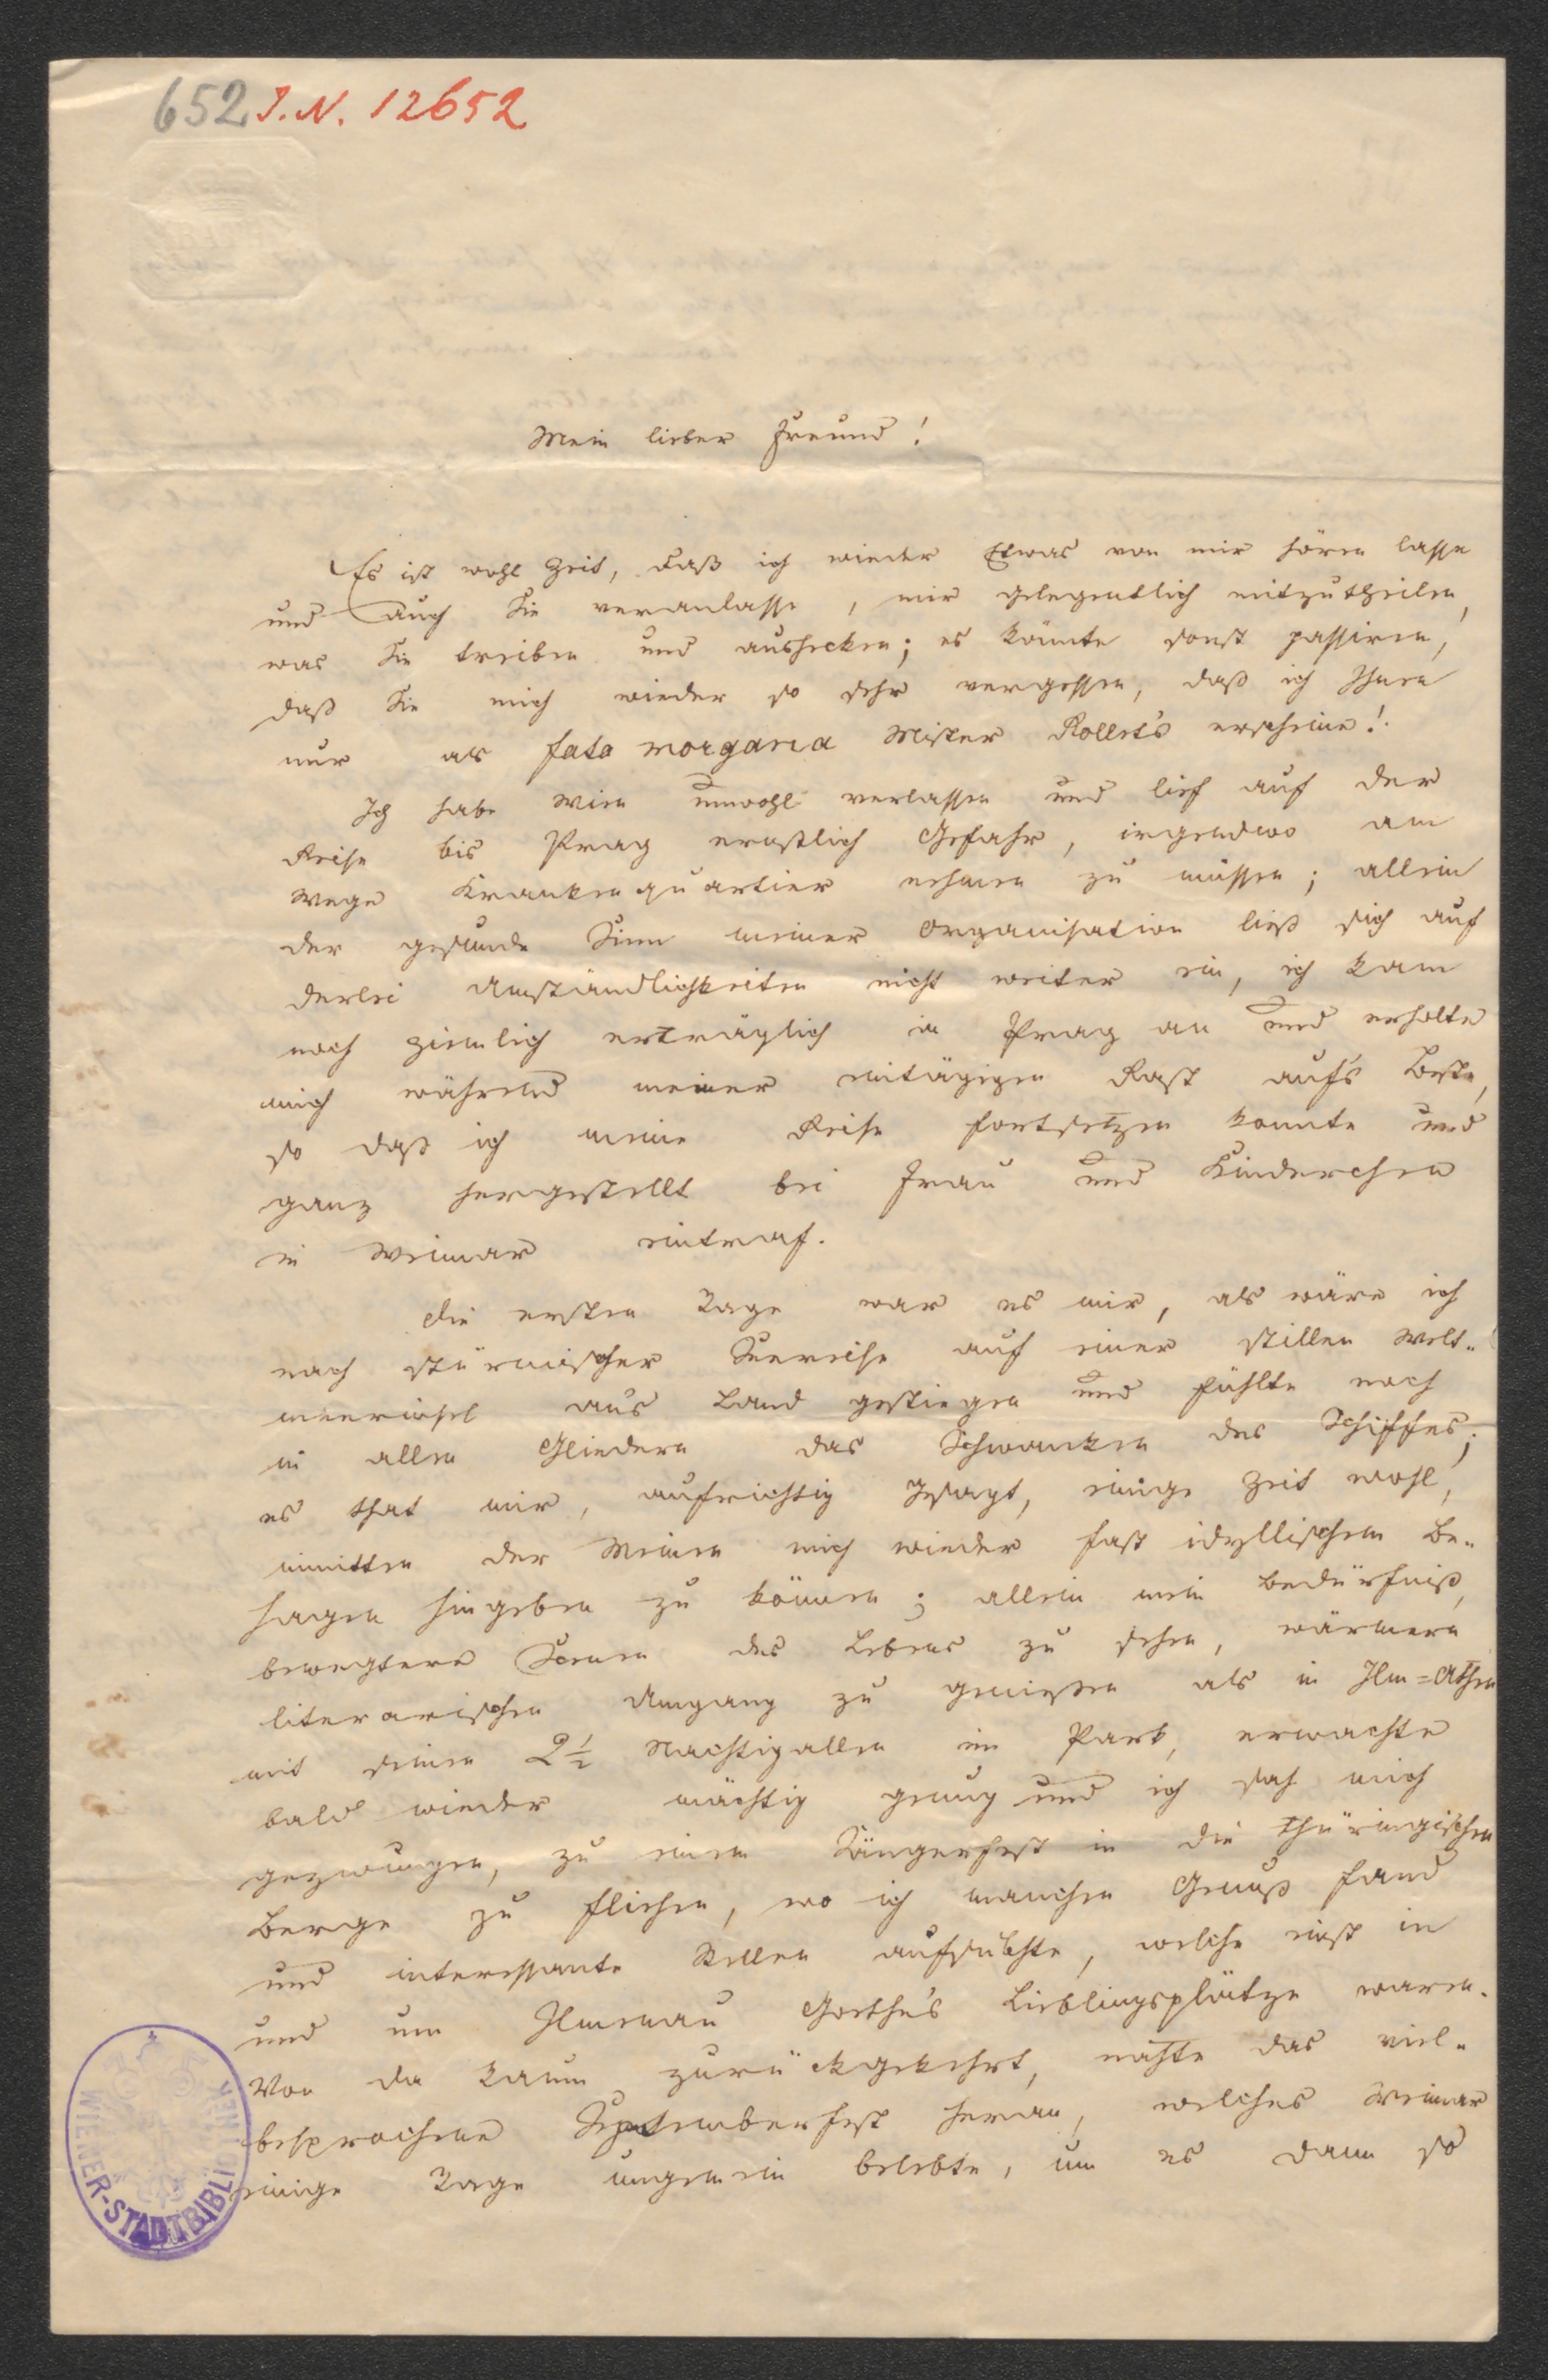 652 I.N. 12652
Mein lieber Freund!
Es ist wohl Zeit, daß ich wieder Etwas von mir hören lasse
und auch Sie veranlasse, mir gelegentlich mitzutheilen,
was Sie treiben und aushecken; es könnte sonst passiren,
daß Sie mich wieder so sehr vergessen, daß ich Ihnen
nur als fata morgana Mister Rollet's erscheine!
Ich habe Wien unwohl verlassen und lief auf der
Reise bis Prag ernstlich Gefahr, irgendwo am
Wege Krankenquartier nehmen zu müssen; allein
der gesunde Sinn meiner Organisation ließ sich auf
derlei Umständlichkeiten nicht weiter ein, ich kam
noch ziemlich erträglich in Prag an und erholte
mich während meiner eintägigen Rast aufs Beste,
so daß ich meine Reise fortsetzen konnte und
ganz hergestellt bei Frau und Kinderchen
in Weimar eintraf.
Die ersten Tage war es mir, als wäre ich
nach stürmischer Seereise auf einer stillen Welt-
meerinsel ans Land gestiegen und fühlte noch
in allen Gliedern das Schwanken des Schiffes;
es that mir, aufrichtig gesagt, einige Zeit wohl,
inmitten der Meinen mich wieder fast idyllischem Be-
hagen hingeben zu können; allein mein Bedürfniß,
bewegtere Scenen des Lebens zu sehen, wärmern
literarischen Umgang zu genießen als in Ilm=Athen
mit seinen 2½ Nachtigallen im Park, erwachte
bald wieder mächtig genug und ich sah mich
gezwungen, zu einem Sängerfest in die thüringischen
Berge zu fliehen, wo ich manchen Genuß fand
und interessante Stellen aufsuchte, welche einst in
und um Ilmenau Goethe's Lieblingsplätze waren.
Von da kaum zurückgekehrt, nahte das viel-
besprochene Septemberfest heran, welches Weimar
einige Tage ungemein belebte, um es dann so
WIENER-STADTBIBLIOTHEK